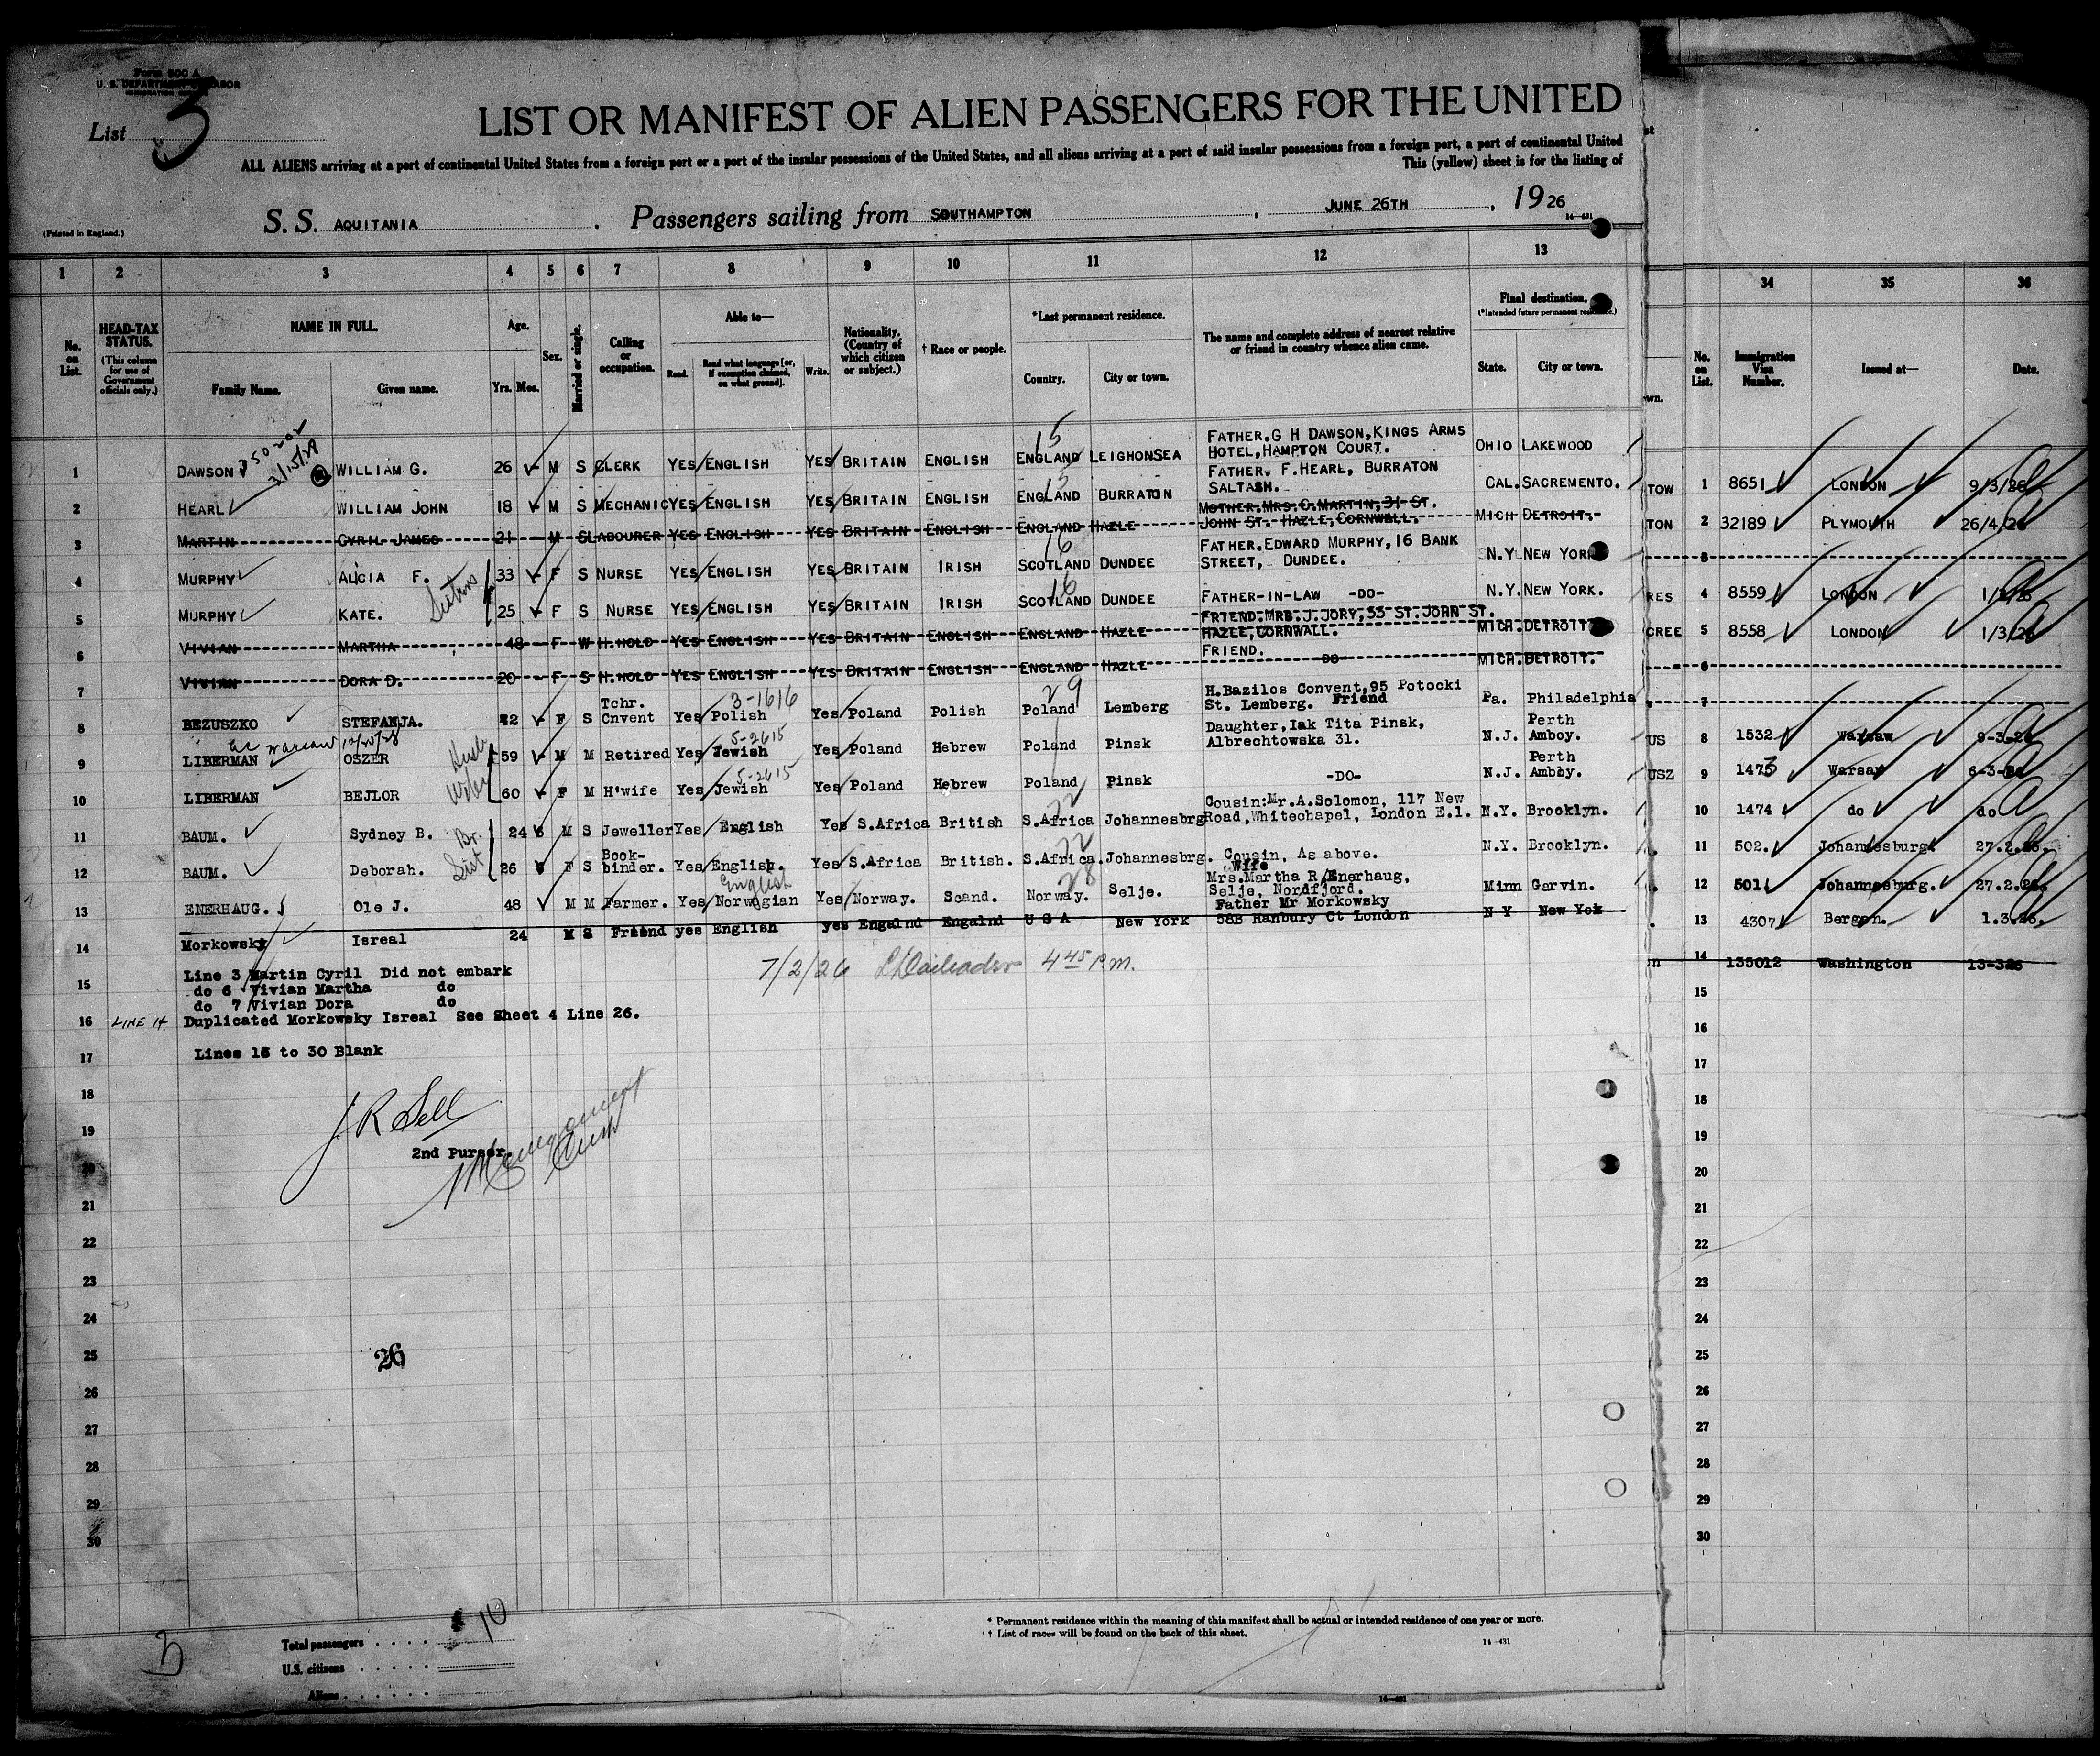 Form 500 A
U. S. DEPARTMENT OF LABOR
List 3
LIST OR MANIFEST OF ALIEN PASSENGERS FOR THE UNITED
ALL ALIENS arriving at a port of continental United States from a foreign port or a port of the insular possessions of the United States, and all aliens arriving at a port of said insular possessions from a foreign port, a port of continental United
This (yellow) sheet is for the listing of
S. S. AQUITANIA . Passengers sailing from SOUTHAMPTON , JUNE 26TH , 1926
(Printed in England.)
14—431
1 2 3 4 5 6 7 8 9 10 11 12 13 34 35 36
No. on List.
HEAD-TAX STATUS.
(This column for use of Government officials only.)
NAME IN FULL.
Family Name. Given name.
Age.
Yrs. Mos.
Sex.
Married or single.
Calling or occupation.
Able to—
Read. Read what language [or, if exemption claimed, on what ground]. Write.
Nationality. (Country of which citizen or subject.)
† Race or people.
*Last permanent residence.
Country. City or town.
The name and complete address of nearest relative or friend in country whence alien came.
Final destination.
(*Intended future permanent residence.)
State. City or town.
wn.
No. on List.
Immigration Visa Number.
Issued at—
Date.
1 DAWSON WILLIAM G. 26 M S CLERK YES ENGLISH YES BRITAIN ENGLISH 15 ENGLAND LEIGHONSEA FATHER. G H DAWSON, KINGS ARMS HOTEL, HAMPTON COURT. OHIO LAKEWOOD
3/15/28
2 HEARL WILLIAM JOHN 18 M S MECHANIC YES ENGLISH YES BRITAIN ENGLISH 15 ENGLAND BURRATON FATHER. F. HEARL, BURRATON SALTASH. CAL. SACREMENTO.
3 MARTIN CYRIL JAMES 21 M S LABOURER YES ENGLISH YES BRITAIN ENGLISH ENGLAND HAZLE MOTHER. MRS. O. MARTIN, 31 ST. JOHN ST. HAZLE, CORNWALL. MICH DETROIT.
4 MURPHY ALICIA F. 33 F S NURSE YES ENGLISH YES BRITAIN IRISH 16 SCOTLAND DUNDEE FATHER. EDWARD MURPHY, 16 BANK STREET, DUNDEE. N.Y. NEW YORK
Sisters
5 MURPHY KATE. 25 F S NURSE YES ENGLISH YES BRITAIN IRISH 16 SCOTLAND DUNDEE FATHER-IN-LAW -DO- N.Y. NEW YORK.
6 VIVIAN MARTHA 48 F W H.HOLD YES ENGLISH YES BRITAIN ENGLISH ENGLAND HAZLE FRIEND. MRS. J. JORY, 33 ST. JOHN ST. HAZLE, CORNWALL. MICH. DETROIT
7 VIVIAN DORA D. 20 F S H.HOLD YES ENGLISH YES BRITAIN ENGLISH ENGLAND HAZLE FRIEND. DO MICH. DETROIT.
8 BEZUSZKO STEFANJA. 22 F S Tchr. Cnvent Yes Polish 3-1616 Yes Poland Polish 29 Poland Lemberg H.Bazilos Convent, 95 Potocki St. Lemberg. Friend Pa. Philadelphia
Warsaw 10/20/28
9 LIBERMAN OSZER 59 M M Retired Yes Jewish 5-2615 Yes Poland Hebrew Poland Pinsk Daughter, Iak Tita Pinsk, Albrechtowska 31. N.J. Perth Amboy.
Husb
Wife
10 LIBERMAN BEJLOR 60 F M H'wife Yes Jewish 5-2615 Yes Poland Hebrew Poland Pinsk -DO- N.J. Perth Amboy.
11 BAUM. Sydney B. 24 M S Jeweller Yes English Yes S.Africa British 22 S.Africa Johannesbrg Cousin: Mr. A. Solomon, 117 New Road, Whitechapel, London E.1. N.Y. Brooklyn.
Br.
Sist
12 BAUM. Deborah. 26 F S Book-binder. Yes English. Yes S.Africa British. 22 S.Africa. Johannesbrg. Cousin, As above. N.Y. Brooklyn.
13 ENERHAUG. Ole J. 48 M M Farmer. Yes Norwegian English Yes Norway. Scand. 28 Norway. Selje. Wife Mrs. Martha R. Enerhaug, Selje, Nordfjord. Minn Garvin.
14 Morkowsky Isreal 24 M S Friend yes English yes Engalnd Engalnd U S A New York Father Mr Morkowsky 58B Hanbury Ct London N Y New Yok
7/2/26 4 45 P.m.
15 Line 3 Martin Cyril Did not embark
do 6 Vivian Martha do
do 7 Vivian Dora do
16 LINE 14. Duplicated Morkowsky Isreal See Sheet 4 Line 26.
17 Lines 15 to 30 Blank
18
J R Sell
19
2nd Purser.
20
21
22
23
24
25
26
26
27
28
29
30
TOW 1 8651 LONDON 9/3/26
TON 2 32189 PLYMOUTH 26/4/26
3
RES 4 8559 LONDON 1/3/26
CREE 5 8558 LONDON 1/3/26
6
7
US 8 1532 Warsaw 9-3-26
USZ 9 1473 Warsaw 6-3-26
10 1474 do do
11 502. Johannesburg. 27.2.26.
12 501 Johannesburg. 27.2.26.
13 4307 Bergen. 1.3.26.
n 14 135012 Washington 13-326
15
16
17
18
19
20
21
22
23
24
25
26
27
28
29
30
Total passengers 10
U.S. citizens
Aliens
* Permanent residence within the meaning of this manifest shall be actual or intended residence of one year or more.
† List of races will be found on the back of this sheet.
14—431
14—431